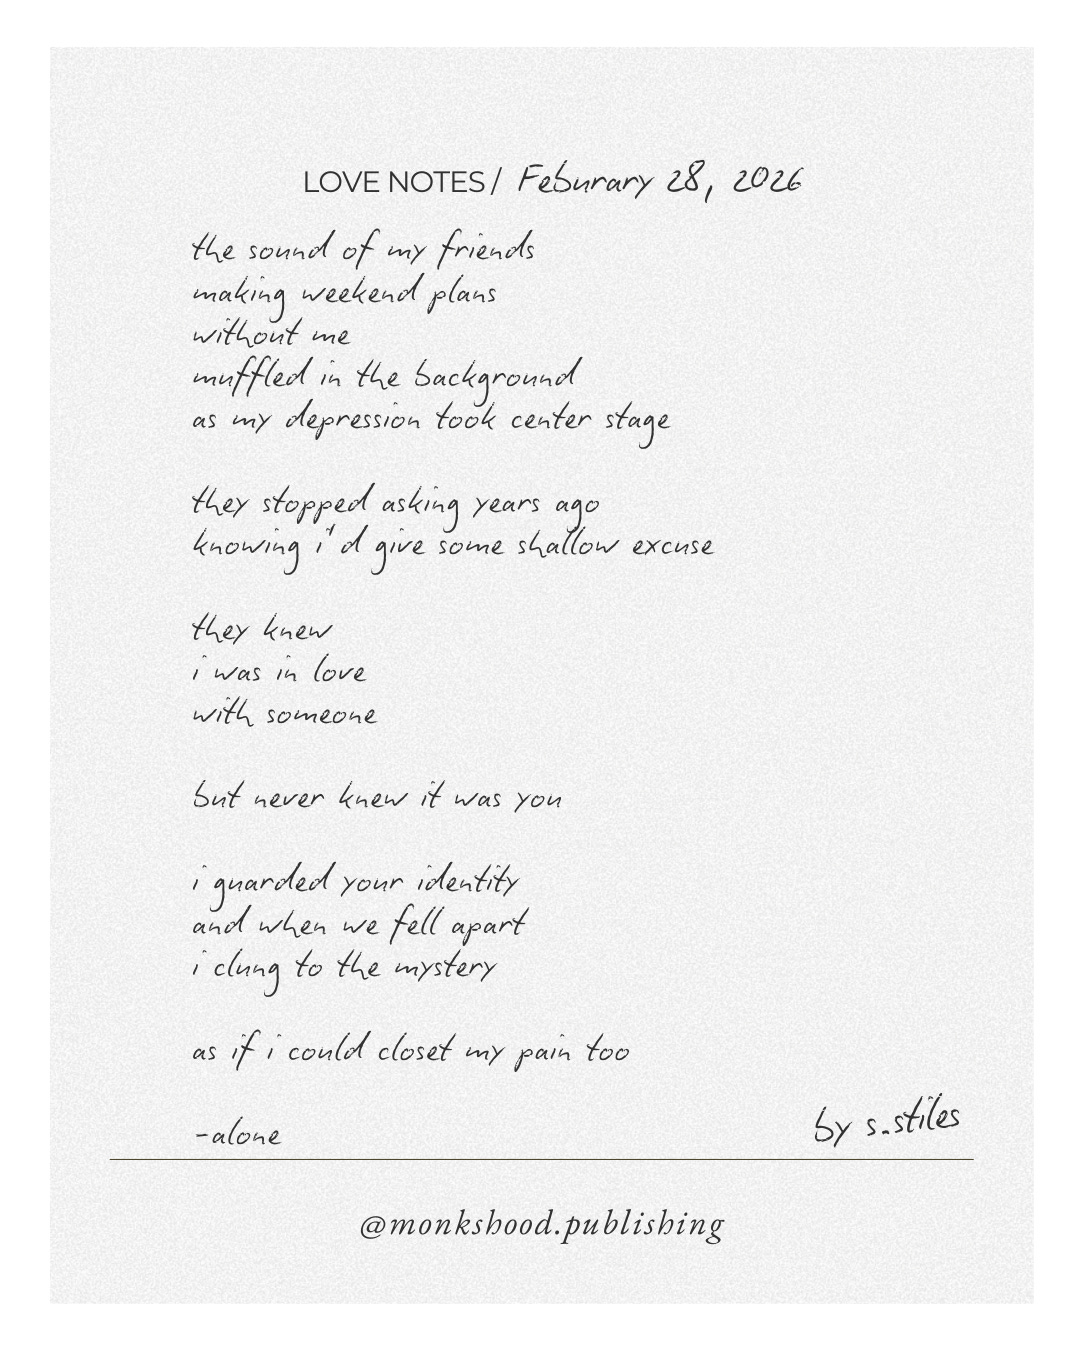 LOVE NOTES/ Feburary 28, 2026
the sound of my friends
making weekend plans
without me
muffled in the background
as my depression took center stage
they stopped asking years ago
knowing i'd give some shallow excuse
they knew
i was in love
with someone
but never knew it was you
i guarded your identity
and when we fell apart
i clung to the mystery
as if i could closet my pain too
-alone
by s.stiles
@monkshood.publishing